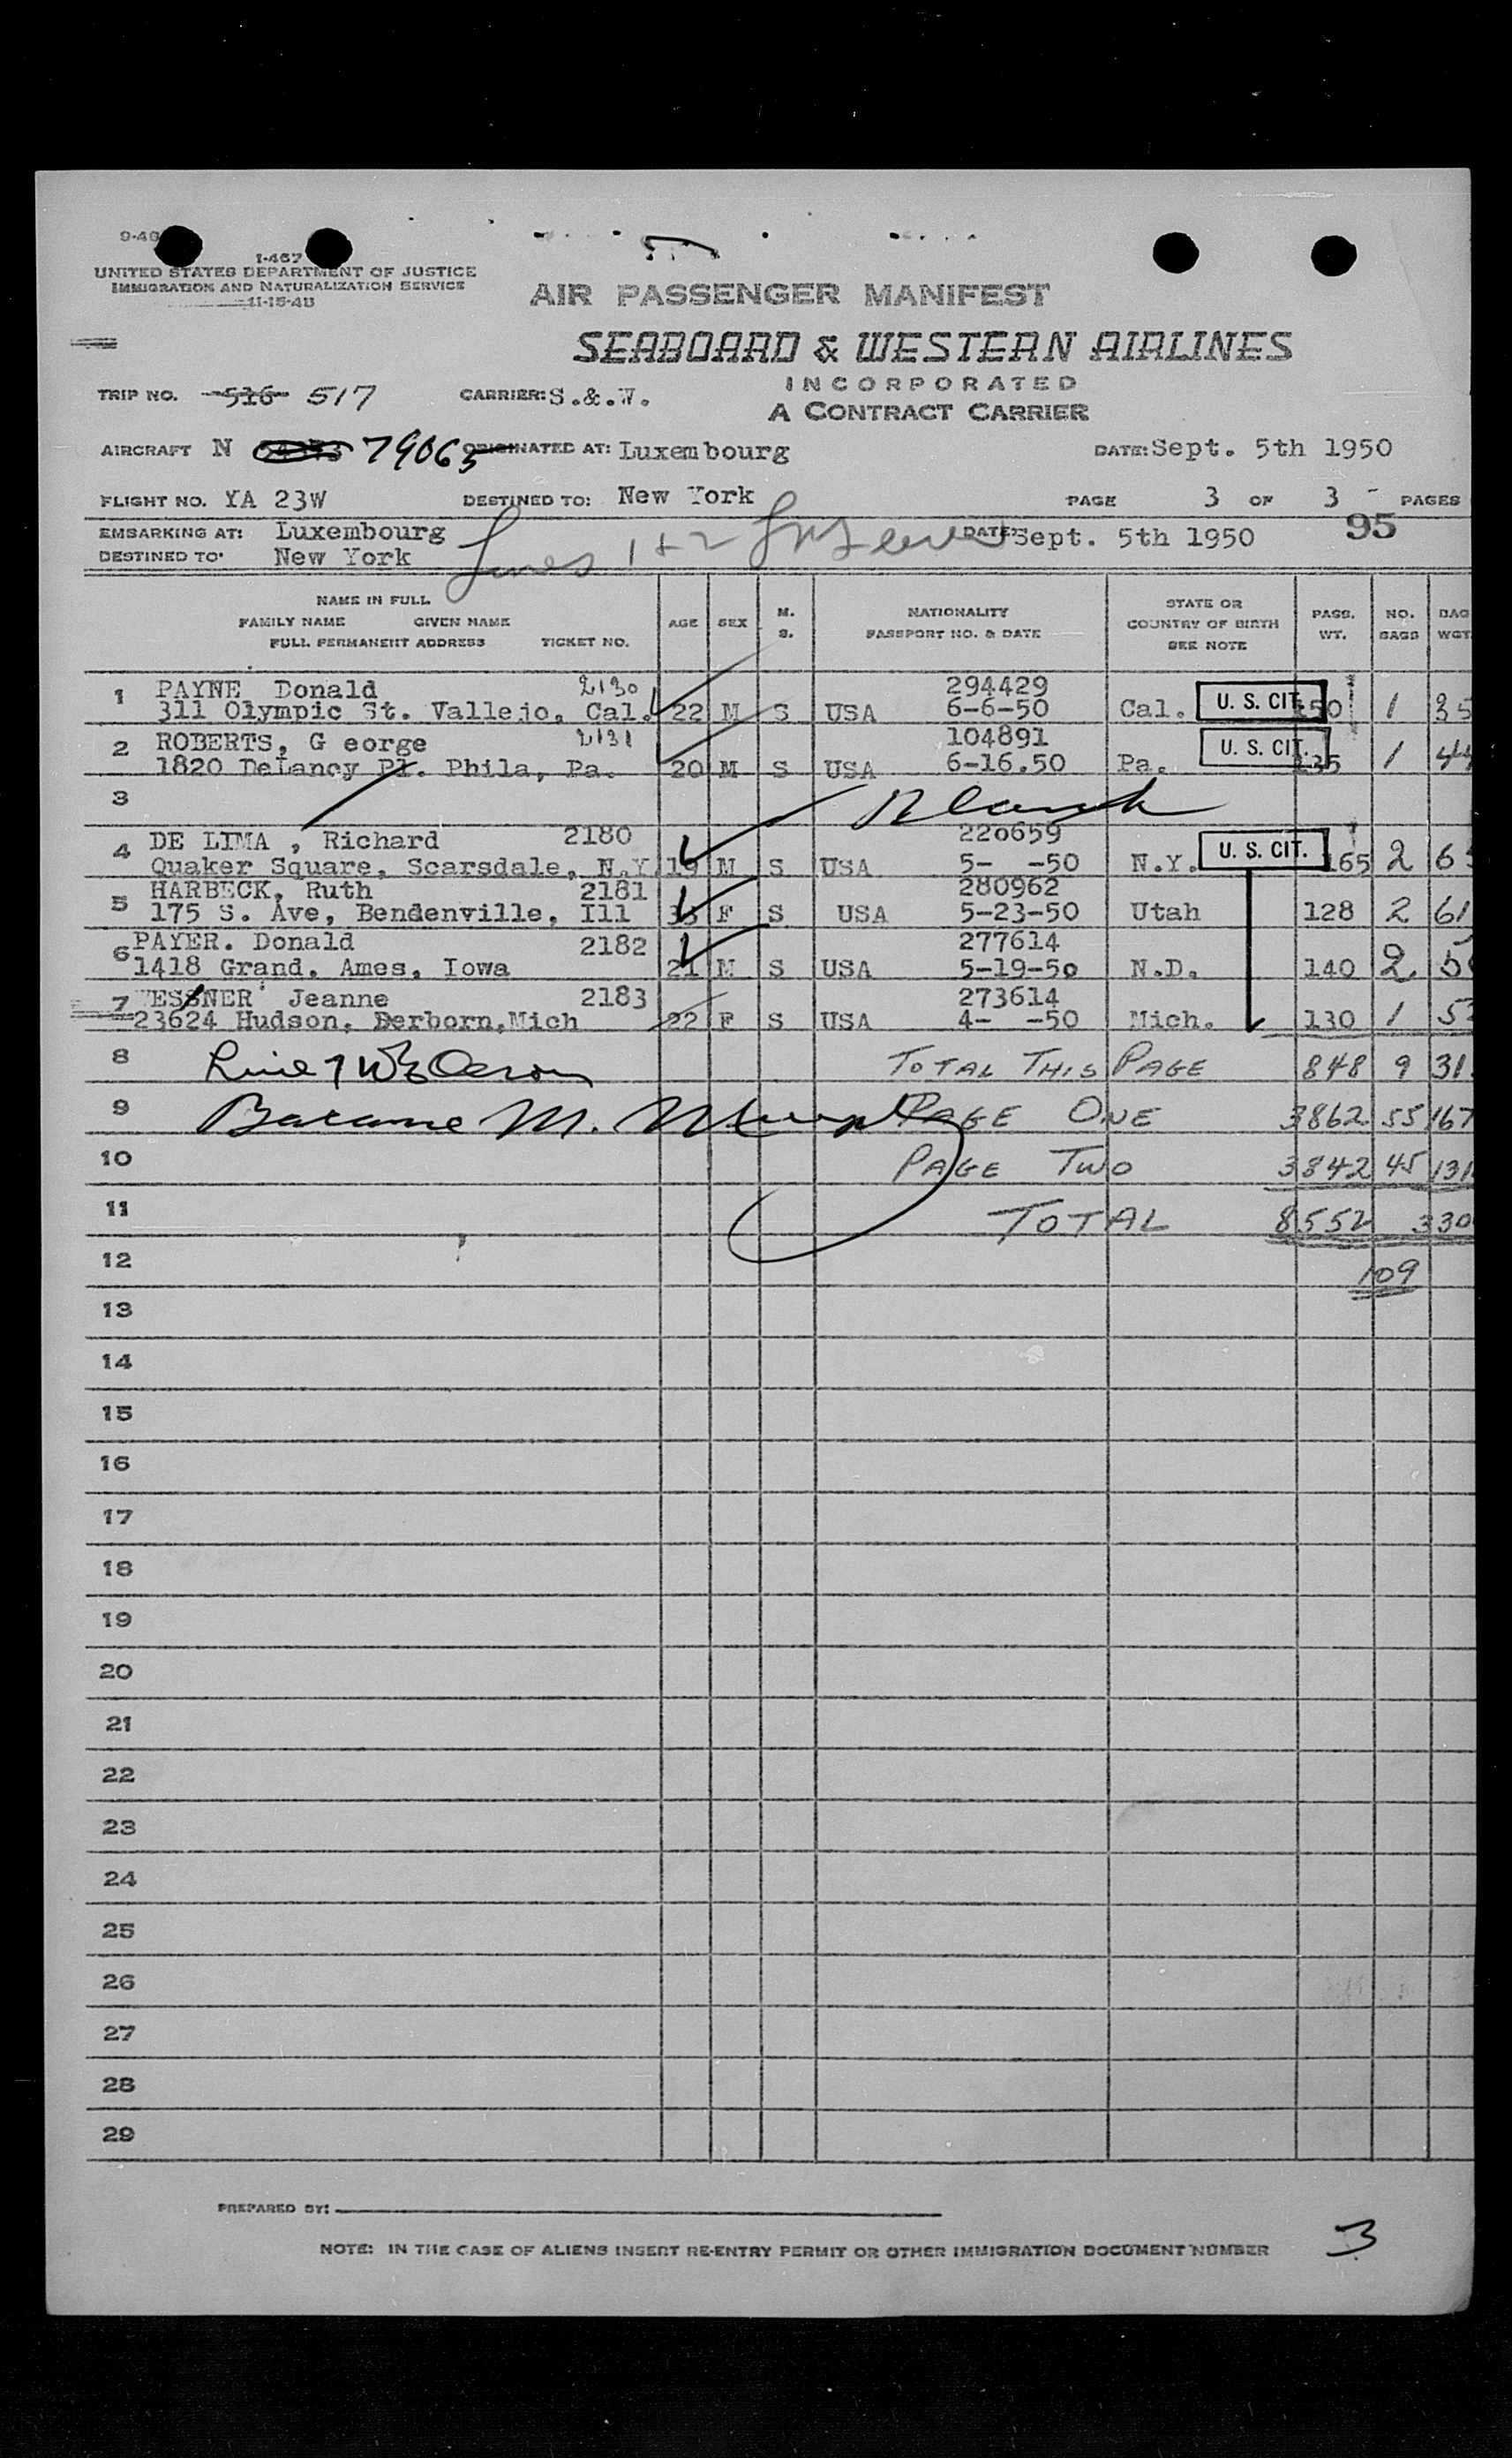 9-49
I-467
UNITED STATES DEPARTMENT OF JUSTICE
IMMIGRATION AND NATURALIZATION SERVICE
11-15-48
AIR PASSENGER MANIFEST
SEABOARD & WESTERN AIRLINES
INCORPORATED
A CONTRACT CARRIER
TRIP NO. 516 517 CARRIER: S.&.W.
AIRCRAFT N 79065 ORIGINATED AT: Luxembourg DATE: Sept. 5th 1950
FLIGHT NO. YA 23W DESTINED TO: New York PAGE 3 OF 3 PAGES
EMBARKING AT: Luxembourg DATE: Sept. 5th 1950 95
DESTINED TO: New York
Lines 1 + 2
NAME IN FULL
FAMILY NAME GIVEN NAME
FULL PERMANENT ADDRESS TICKET NO.
AGE SEX M. S.
NATIONALITY
PASSPORT NO. & DATE
STATE OR COUNTRY OF BIRTH SEE NOTE
PASS. WT. NO. BAGS BAG WGT
1 PAYNE Donald 2130 294429
311 Olympic St. Vallejo, Cal. 22 M S USA 6-6-50 Cal. U. S. CIT. 150 1 35
2 ROBERTS, G eorge 2131 104891
1820 DeLancy Pl. Phila, Pa. 20 M S USA 6-16.50 Pa. U. S. CIT. 135 1 44
3 Blank
4 DE LIMA , Richard 2180 220659
Quaker Square, Scarsdale, N.Y. 19 M S USA 5- -50 N.Y. U. S. CIT. 165 2
5 HARBECK, Ruth 2181 280962
175 S. Ave, Bendenville, Ill F S USA 5-23-50 Utah 128 2 61
6 PAYER. Donald 2182 277614
1418 Grand, Ames, Iowa 21 M S USA 5-19-50 N.D. 140 2
7 WESSNER Jeanne 2183 273614
23624 Hudson, Derborn,Mich 22 F S USA 4- -50 Mich. 130 1
8 Line 7 TOTAL THIS PAGE 848 9 31
9 M. PAGE ONE 3862 55 167
10 PAGE TWO 3842 45 131
11 TOTAL 8552 330
12 109
13
14
15
16
17
18
19
20
21
22
23
24
25
26
27
28
29
PREPARED BY:
NOTE: IN THE CASE OF ALIENS INSERT RE-ENTRY PERMIT OR OTHER IMMIGRATION DOCUMENT NUMBER
3